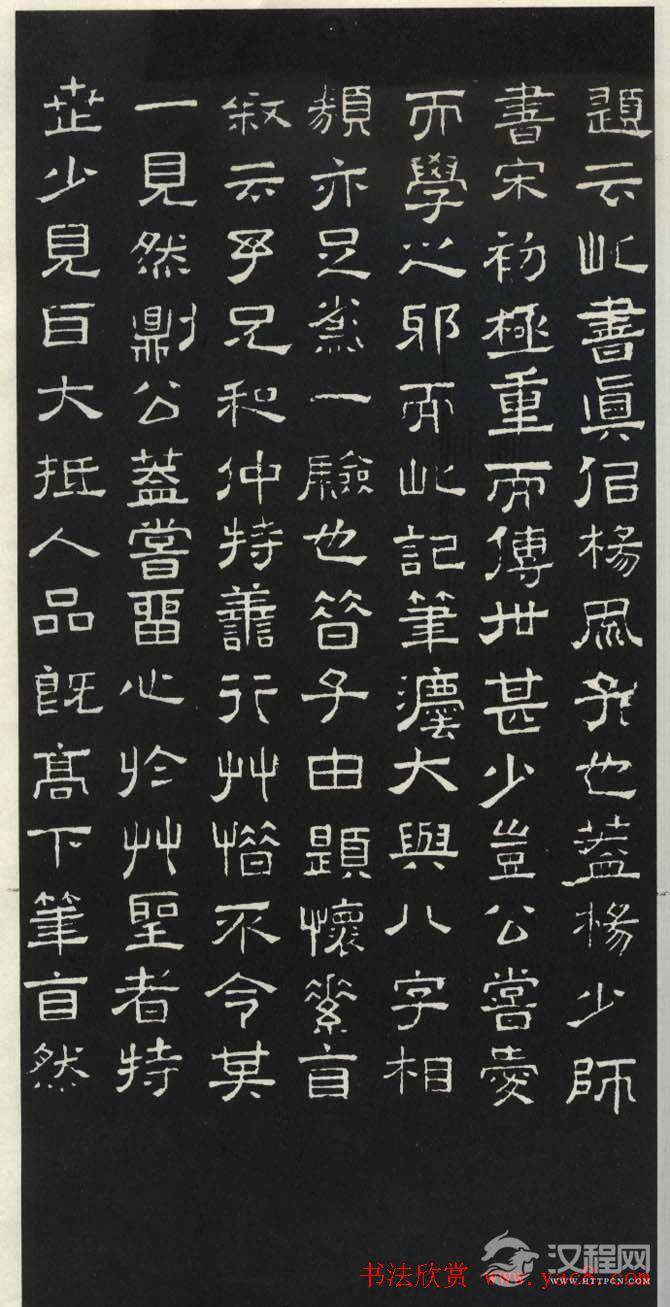 題云此書眞侣楊風子也蓋楊少師
書宋初極重而傳世甚少豈公嘗愛
而學之邪而此記筆灋大與八字相
類亦足爲一驗也昔子由題懷素自
叙云予兄和仲特善行艸惜不令其
一見然則公蓋嘗留心於艸聖者特
世少見耳大抵人品既高下筆自然
汉程网
书法欣赏
WWW.HTTPCN.COM